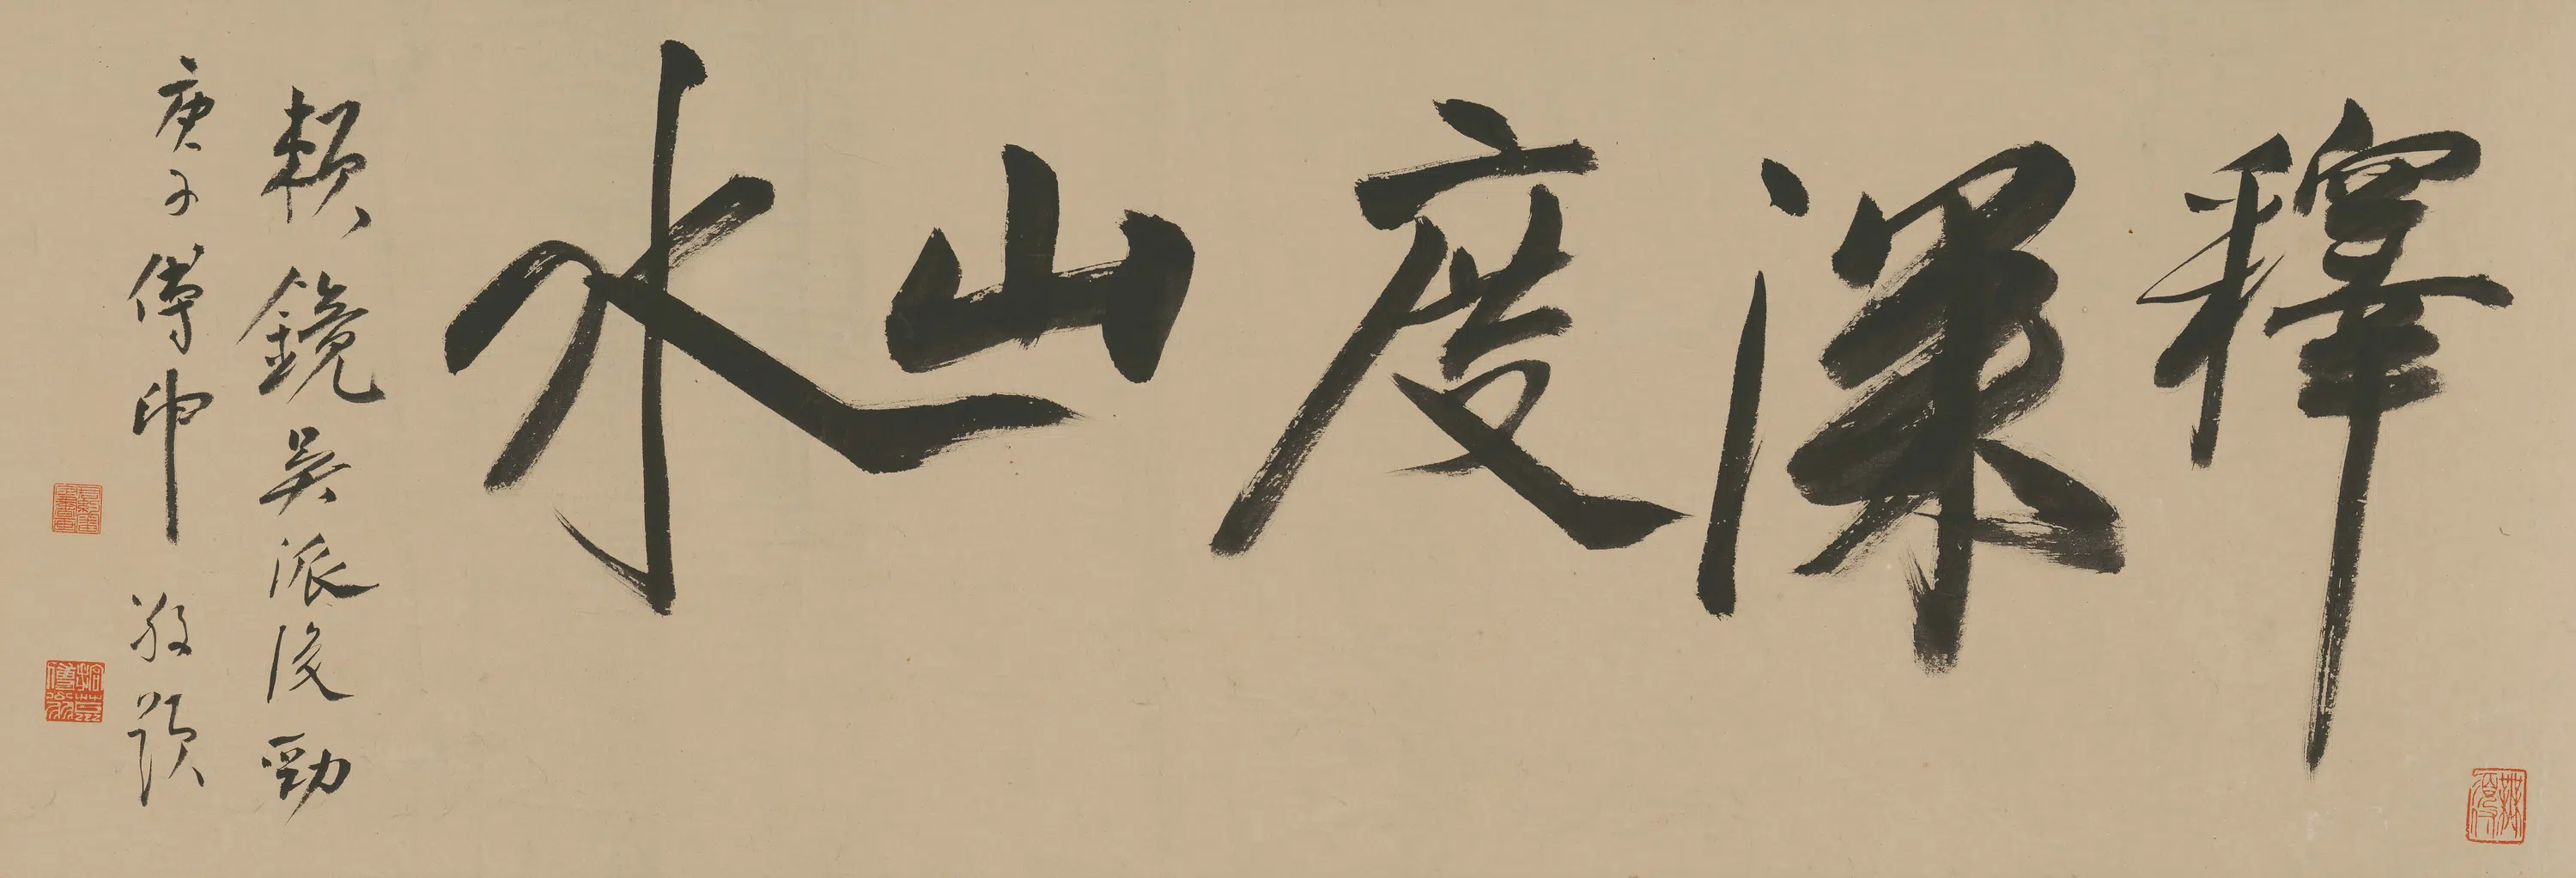 釋深度山水
賴鏡吳派後勁
庚子傅申敬題